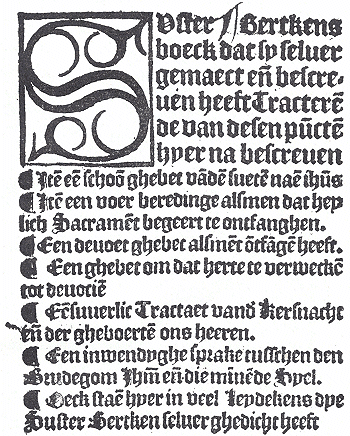 Suster Bertkens
boeck dat sy seluer
gemaect en̄ bescre-
uen heeft Tracterē
de van desen pūctē
hyer na bescreuen
¶ Itē eē schoō ghebet vādē suetē naē ihūs
¶ Itē een voer beredinge alsmen dat hey
lich Sacramēt begeert te ontfanghen.
¶ Een deuoet ghebet alsmēt ōtfāgē heeft.
¶ Een ghebet om dat herte te verweckē
tot deuociē
¶ Eē suuerlic Tractaet vandē kersnacht
en̄ der gheboertē ons heeren.
¶ Een inwendyghe sprake tusschen den
Brudegom Jhm̄ en̄ die minēde Syel.
¶ Oeck staē hyer in veel leydekens dye
Suster Bertken seluer ghedicht heeft